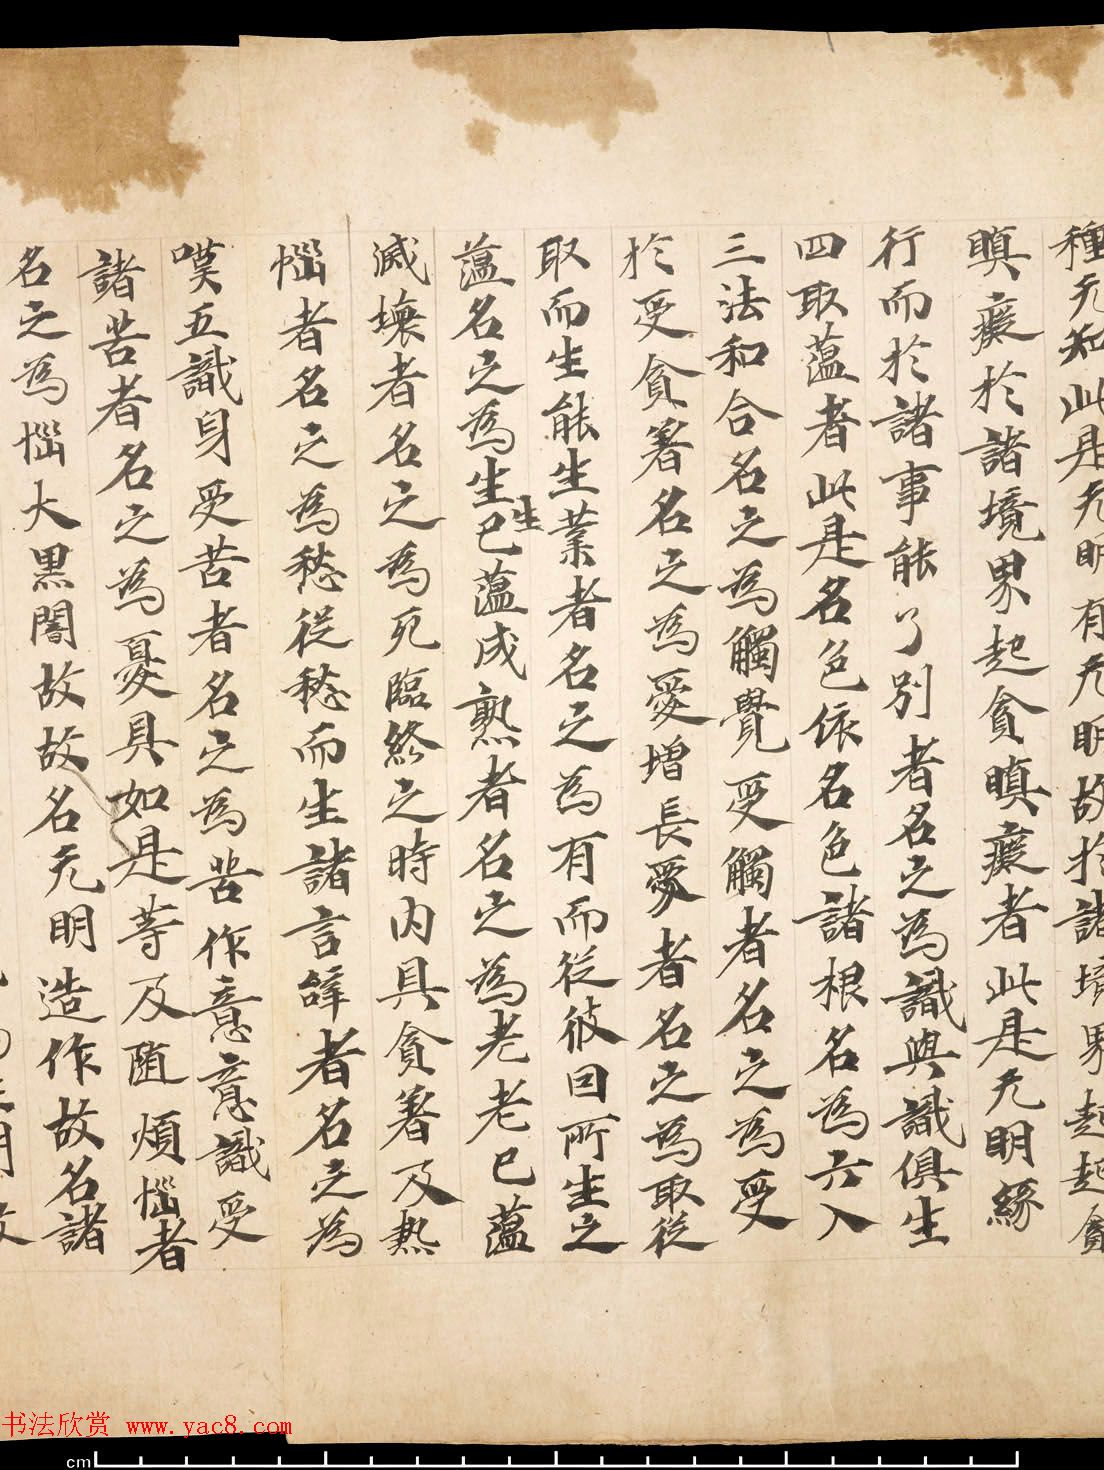 種无知此是无明有无明故於諸境界起起貪
瞋癡於諸境界起貪瞋癡者此是无明緣
行而於諸事能了別者名之為識與識俱生
四取蘊者此是名色依名色諸根名為六入
三法和合名之為觸覺受觸者名之為受
於受貪著名之為愛增長愛者名之為取從
取而生能生業者名之為有而從彼因所生之
蘊名之為生生已蘊成熟者名之為老老已蘊
滅壞者名之為死臨終之時内具貪著及熱
惱者名之為愁從愁而生諸言辝者名之為
嘆五識身受苦者名之為苦作意意識受
諸苦者名之為憂具如是等及隨煩惱者
名之為惱大黑闇故故名无明造作故名諸
书法欣赏 www.yac8.com
cm